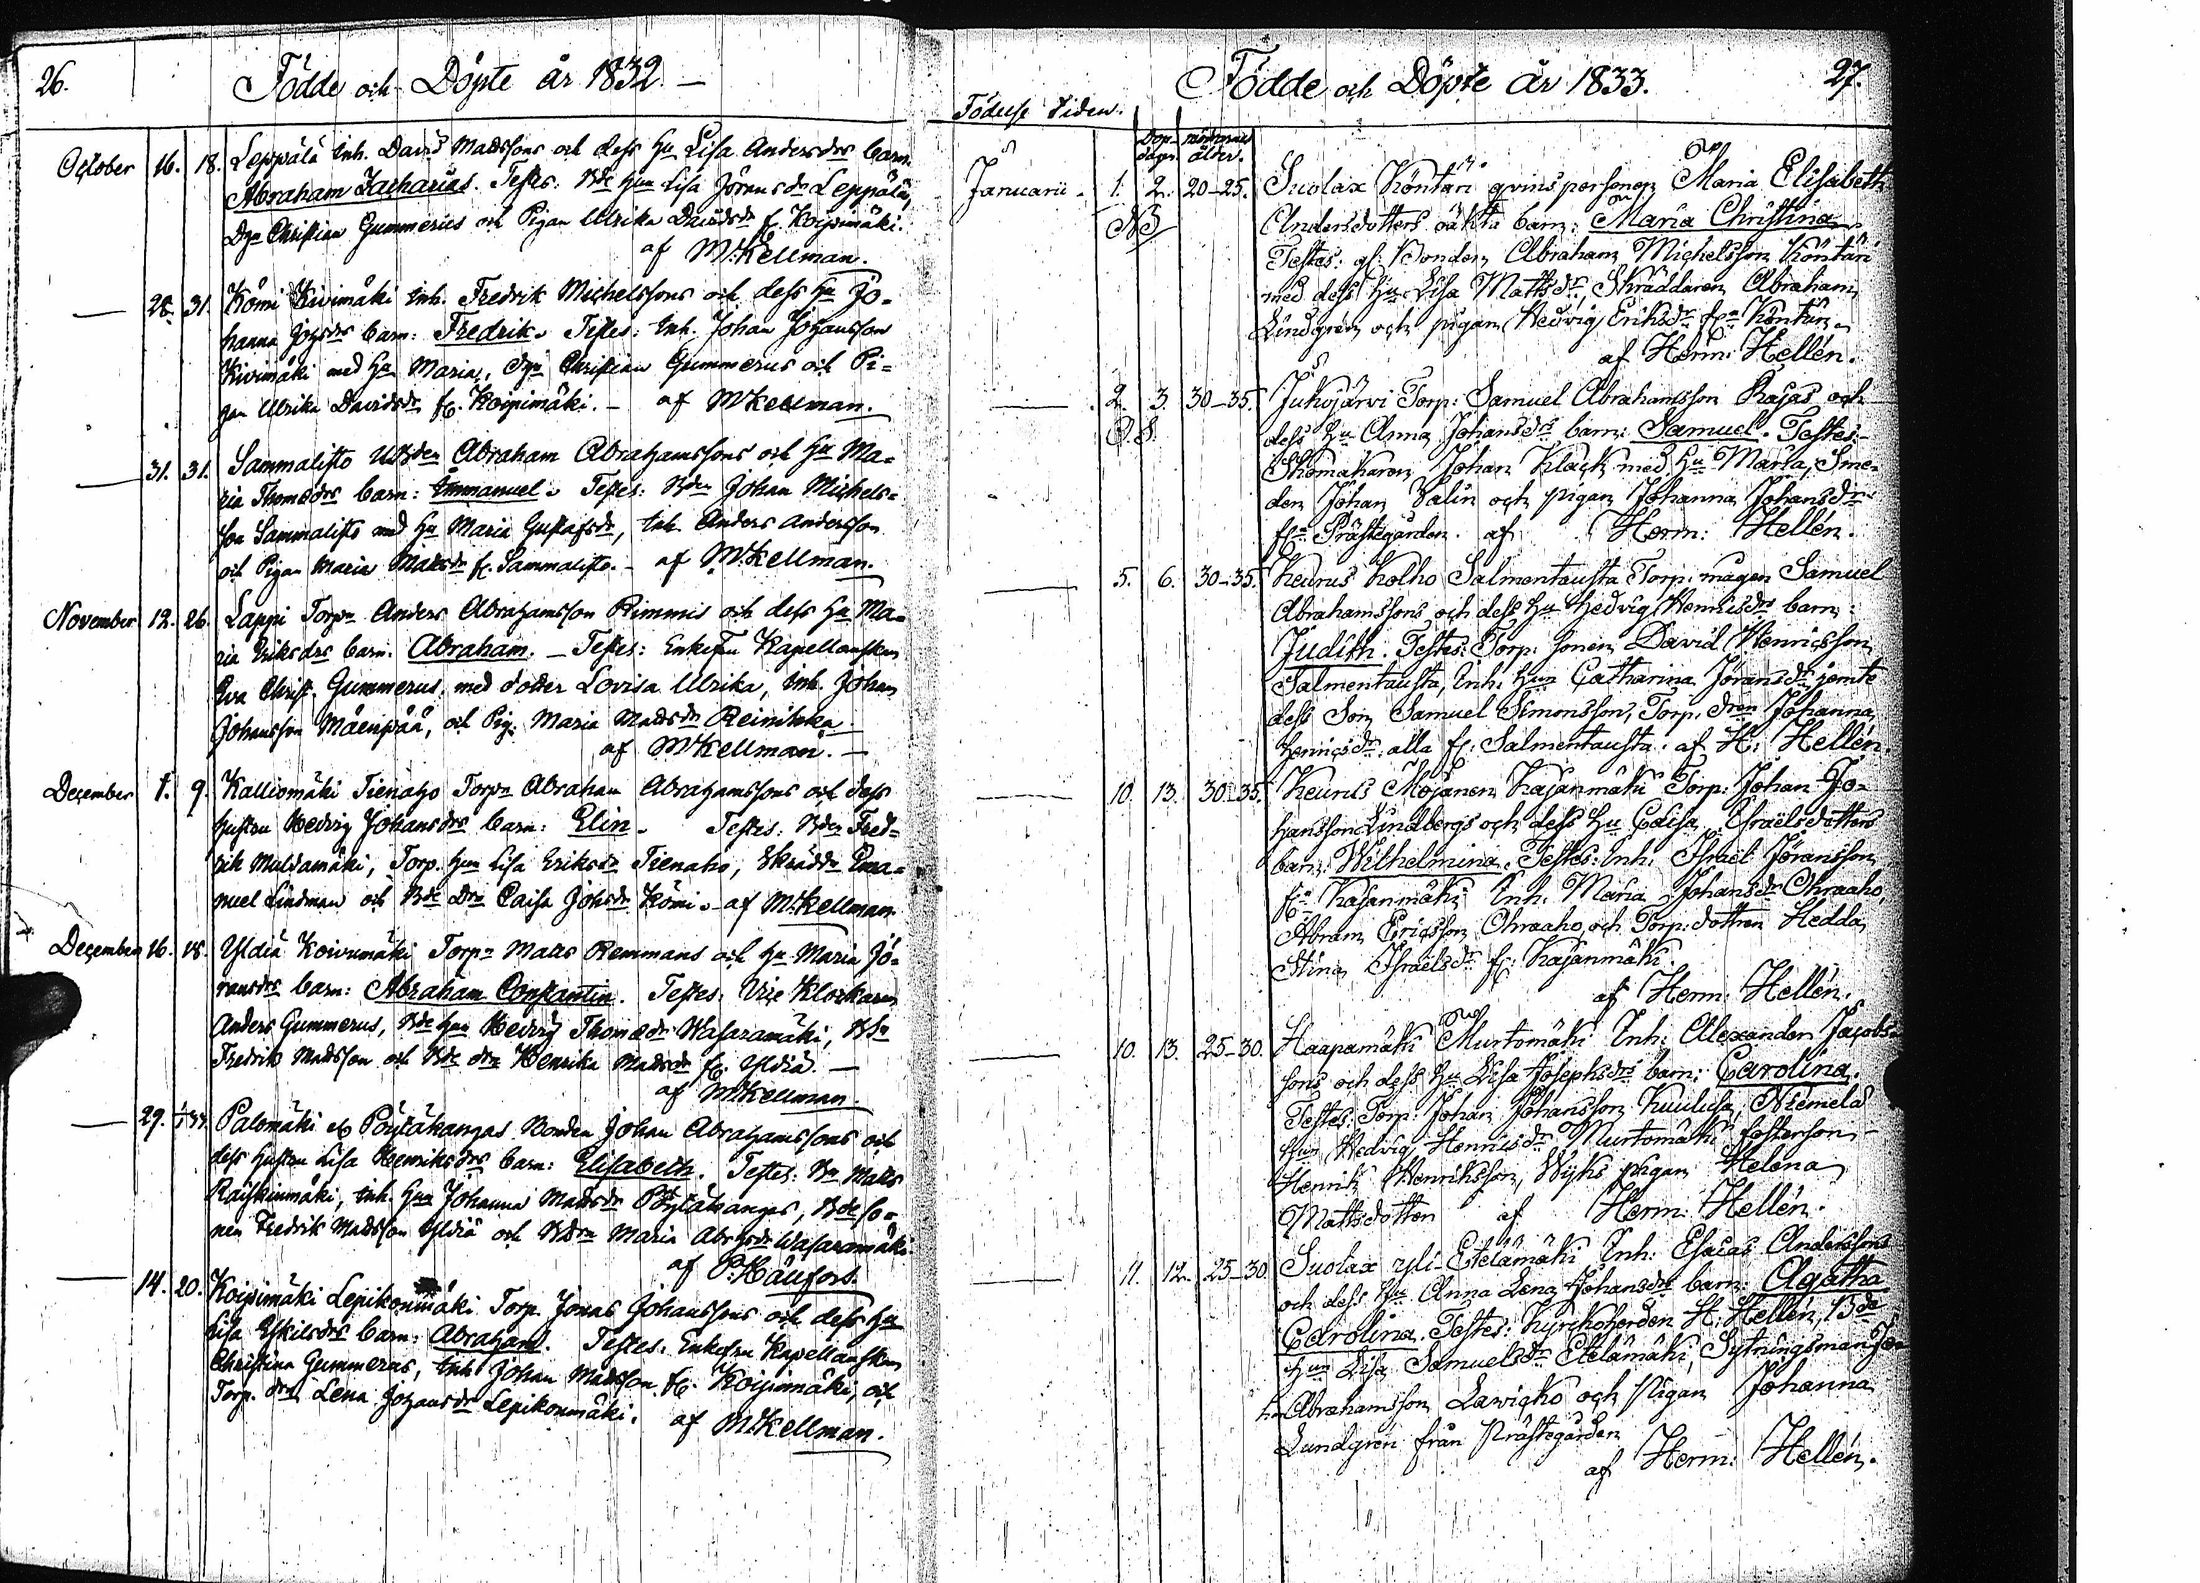 26.
Födde och Döpte år 1832. —
October 16. 18. Leppälä Inh. David Mattssons och dess Hu Lisa Andersdrs barn
Abraham Zacharias. Testes: Bde Hun Lisa Jöransdr Leppälä,
Dgn Christian Gummerus och Pigan Ulrika Davidsdr fr. Koipimäki.
af M. Kellman.
— 28. 31. Kömi Kivimäki Inh. Fredrik Michelssons och dess Hu Jo-
hanna Johsdrs barn: Fredrik. Testes: Inh. Johan Johansson
Kivimäki med Hu Maria, Dgn Christian Gummerus och Pi-
gan Ulrika Davidsdr fr. Koipimäki. — af M. Kellman.
— 31. 31. Sammalisto Abraham Abrahamssons och Hu Ma-
ria Thomædrs barn: Immanuel. Testes: Bden Johan Michels-
son Sammalisto med Hu Maria Gustafsdr, Inh. Anders Andersson
och Pigan Maria Mattsdr fr. Sammalisto. — af M. Kellman.
November 12. 26. Lappi Torpn Anders Abrahamsson Rimmis och dess Hu Ma-
ria Eriksdrs barn. Abraham. — Testes: Enkefru Kapellanskan
Eva Christ. Gummerus, med dotter Lovisa Ulrika, Inh. Johan
Johansson Mäenpää, och Pig. Maria Mattsdr Reinikka
af M. Kellman. —
December 1. 9. Kalliomäki Tienaho Torpn Abraham Abrahamssons och dess
hustru Hedvig Johansdrs barn: Elin. Testes: Bden Fred-
rik Multamäki, Torp. Hun Lisa Eriksdr Tienaho, Skräddn Ema-
nuel Lindman och Bde Drn Caisa Johsdr Kömi. — af M. Kellman.
December 16. 18. Yldiä Koivumäki Torpn Matts Remmans och Hu Maria Jö-
ransdrs barn: Abraham Constantin. Testes: Vice Klockaren
Anders Gummerus, Bde Hun Hedvig Thomædr Wasaramäki, Bdn
Fredrik Mattsson och Bde drn Henrika Mattsdr fr. Yldiä. —
af M. Kellman.
— 29. 1/1 33. Palomäki Pöytäkangas Bonden Johan Abrahamssons och
dess hustru Lisa Henriksdrs barn: Elisabeth. Testes: Bn Matts
Raiskinmäki, Inh. Hun Johanna Mattsdr Pöytäkangas, Bde so-
nen Fredrik Mattsson Yldiä och Bdrn Maria Abrhsdr Wasaramäki
af P. Hänfors.
— 14. 20. Koipimäki Lepikonmäki Torp. Jonas Johanssons och dess Hu
Lisa Eskilsdrs barn: Abraham. Testes: Enkefru Kapellanskan
Christina Gummerus, Inh. Johan Mattsson fr. Koipimäki, och
Torp. drn Lena Johansdr Lepikonmäki. af M. Kellman.
27.
Födde och Döpte år 1833.
Födelse Tiden.
Dop-dagen mödrnas ålder.
Januarii 1. 2. 20–25. Suolax Köntäri qvinspersonen Maria Elisabeth
NB Andersdotters oäkta barn: Maria Christina
Testes: gl: Bonden Abraham Michelsson Köntäri
med dess Hu Lisa Mattsdr, Skräddaren Abraham
Lindgren och pigan Hedvig Eriksdr frn Köntäri.
af Herm: Hellén.
— 2. 3. 30–35. Jukojärvi Torp: Samuel Abrahamsson Rajas och
dess Hu Anna Johansdrs barn: Samuel. Testes:
Skomakaren Johan Klack med Hu Maria, Sme-
den Johan Salin och pigan Johanna Johansdr
frn Prästegården. af Herm: Hellén.
— 5. 6. 30–35. Keurus Kolho Salmentausta Torp: mågen Samuel
Abrahamssons och dess Hu Hedvig Henricsdrs barn:
Judith. Testes: Torp: sonen David Henricsson
Salmentausta, Inh: Hun Catharina Jöransdr jemte
dess Son Samuel Simonsson, Torp. dren Johanna
Henricsdr. alla fr: Salmentausta. af H: Hellén.
— 10. 13. 30–35. Keurus Möjänen Kajanmäki Torp: Johan Jo-
hansson Lindbergs och dess Hu Caisa Israelsdotters
barn: Wilhelmina. Testes: Inh: Israel Jöransson
frn Kajanmäki Inh: Maria Johansdr Ohraaho,
Abram Ericsson Ohraaho, och Torp: dottren Hedda
Stina Israelsdr fr: Kajanmäki.
af Herm: Hellén.
— 10. 13. 25–30. Haapamäki Murtomäki Inh: Alexander Jacobs-
sons och dess Hu Lisa Josephsdrs barn: Carolina.
Testes: Torp: Johan Johansson Kuulusa, Niemelä
Hun Hedvig Henricsdr Murtomäki fosterson
Henrik Henriksson, Wyks pigan Helena
Mattsdotter af Herm: Hellén.
— 11. 12. 25–30. Suolax yli-Etelämäki Inh: Esaias Anderssons
och dess Hu Anna Lena Johansdrs barn: Agatha
Carolina. Testes: Kyrkoherden H: Hellén, Bde
Hun Lisa Samuelsdr Etelämäki, Sytningsman
Abrahamsson Lavicko och Pigan Johanna
Lundgren från Prästegården
af Herm: Hellén.